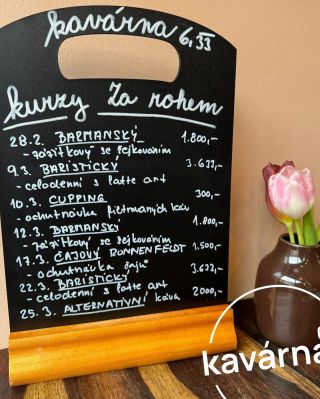 kavárna
za rohem
kurzy
28.2. BARMANSKÝ 1.800,-
- zážitkový se šejkováním
9.3. BARISTICKÝ 3.633,-
- celodenní s latte art
10.3. CUPPING 300,-
- ochutnávka filtrovaných káv
12.3. BARMANSKÝ 1.800,-
- zážitkový se šejkováním
17.3. ČAJOVÝ RONNENFELDT 1.500,-
- ochutnávka čajů
22.3. BARISTICKÝ 3.633,-
- celodenní s latte art
25.3. ALTERNATIVNÍ káva 2000,-
kavárna